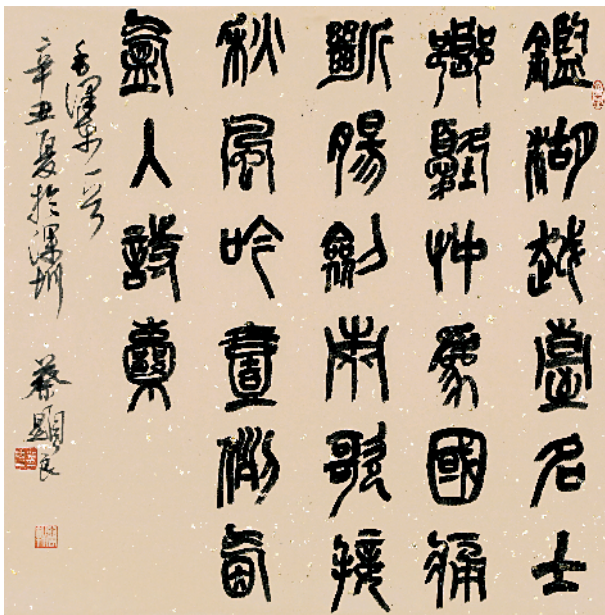 鑑湖越臺名士
鄉憂忡為國痛
斷腸劍南歌接
秋風吟壹例氤
氳入詩囊
毛澤東一首
辛丑夏於深圳 蔡顯良